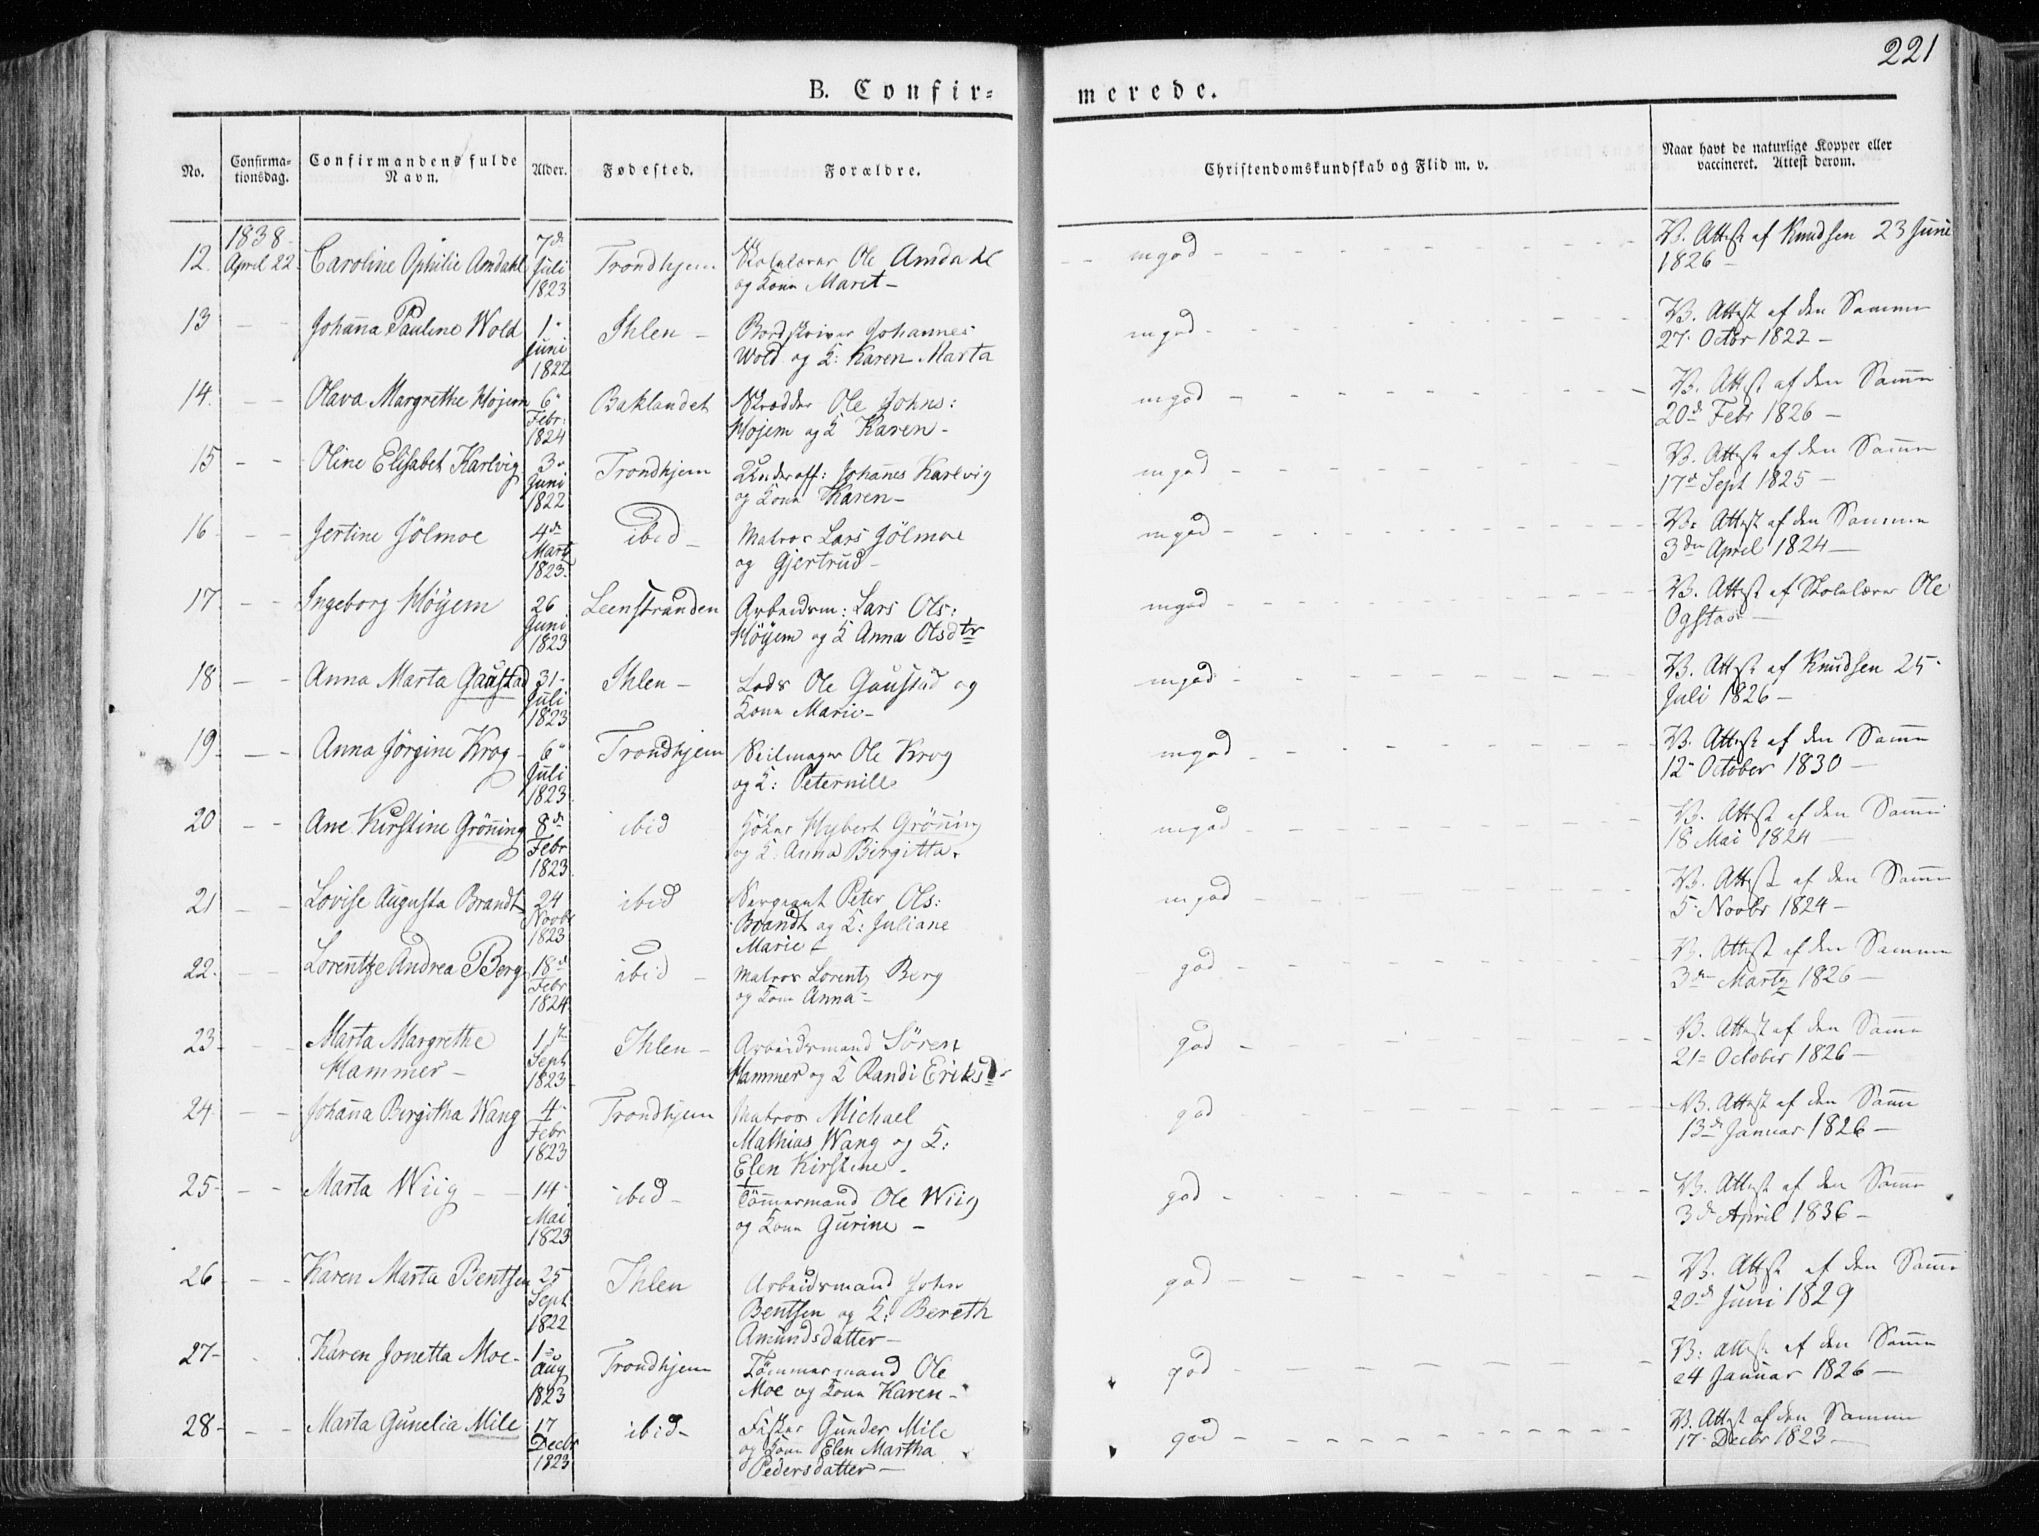 221
B. Confir-
merede.
No.
Confirma-
tionsdag.
Confirmandens fulde
Navn.
Alder.
Fødested.
Forældre.
Christendomskundskab og Flid m. v.
Naar havt de naturlige Kopper eller
vaccineret. Attest derom.
1838
12. April 22. Caroline Ophilie Amdahl 7de Juli 1823 Trondhjem Skolelærer Ole Amdahl
og Kone Marit - mgod V. Attest af Knudsen 23 Juni
1826 -
13 - - Johanna Pauline Wold 1. Juni 1822 Ihlen - Bordskriver Johannes
Wold og K: Karen Marta mgod V. Attest af den Samme
27. Octbr 1822 -
14. - - Olava Margrethe Højem 6 Febr. 1824 Baklandet Skrædder Ole Johns:
Højem og K Karen - mgod V. Attest af den Samme
20d Febr 1826 -
15 - - Oline Elisabet Karlvig 3. Juni 1822 Trondhjem Underoff: Johanes Karlvig
og Kone Karen - mgod V. Attest af den Samme
17d Sept 1825 -
16 - - Jertine Jølmoe 4de Marts 1823. ibid - Matros Lars Jølmoe
og Gjertrud - mgod V. Attest af den Samme
3die April 1824 -
17 - - Ingeborg Høyem 26 Juni 1823 Leenstranden Arbeidsm: Lars Ols:
Høyem og K Anna Olsdtr mgod V. Attest af Skolelærer Ole
Ogstad -
18 - - Anna Marta Gaustad 31 Juli 1823 Ihlen - Lods Ole Gaustad og
Kone Marie - mgod V. Attest af Knudsen 25
Juli 1826 -
19 - - Anna Jørgine Krog - 6 Juli 1823 Trondhjem Seilmager Ole Krog
og K: Peternille mgod V. Attest af den Samme
12 October 1830 -
20 - - Ane Kirstine Grønning 8de Febr 1823 ibid Hybert Grønning
og K: Anna Birgitta. mgod V. Attest af den Samme
18 Mai 1824 -
21 - - Lovise Augusta Brandt 24 Novbr 1823 ibid Sergeant Peter Ols:
Brandt og K: Juliane
Marie - mgod V. Attest af den Samme
5 Novbr 1824 -
22. - - Lorentze Andrea Berg 18d Febr 1824 ibid - Matros Lorentz Berg
og Kone Anna - god V. Attest af den Samme
3die Marts 1826 -
23 - - Marta Margrethe
Hammer - 1ste Sept 1823 Ihlen - Arbeidsmand Søren
Hammer og K Randi Eriksd. god V. Attest af den Samme
21 October 1826 -
24 - - Johanna Birgitha Wang 4 Febr 1823 Trondhjem Matros Michael
Mathias Wang og K:
Elen Kirstine - god V. Attest af den Samme
13d Januar 1826 -
25 - - Marta Wiig - - 14 Mai 1823 ibid - Tømmermand Ole Wiig
og Kone Gurine - god V. Attest af den Samme
3d April 1836 -
26 - - Karen Marta Bentsen 25 Sept 1822 Ihlen Arbeidsmand John
Bentsen og K: Bereth
Amundsdatter - god V. Attest af den Samme
20d Juni 1829
27 - Karen Jonetta Moe - 1 Aug 1823 Trondhjem Tømmermand Ole
Moe og Kone Karen - god V. Attest af den Samme
24 Januar 1826 -
28 - - Marta Gunelia Mile 17 Decbr 1823 ibid - Fisker Gunder Mile
og Kone Elen Martha
Pedersdatter - god V. Attest af den Samme
17 Decbr 1823 -